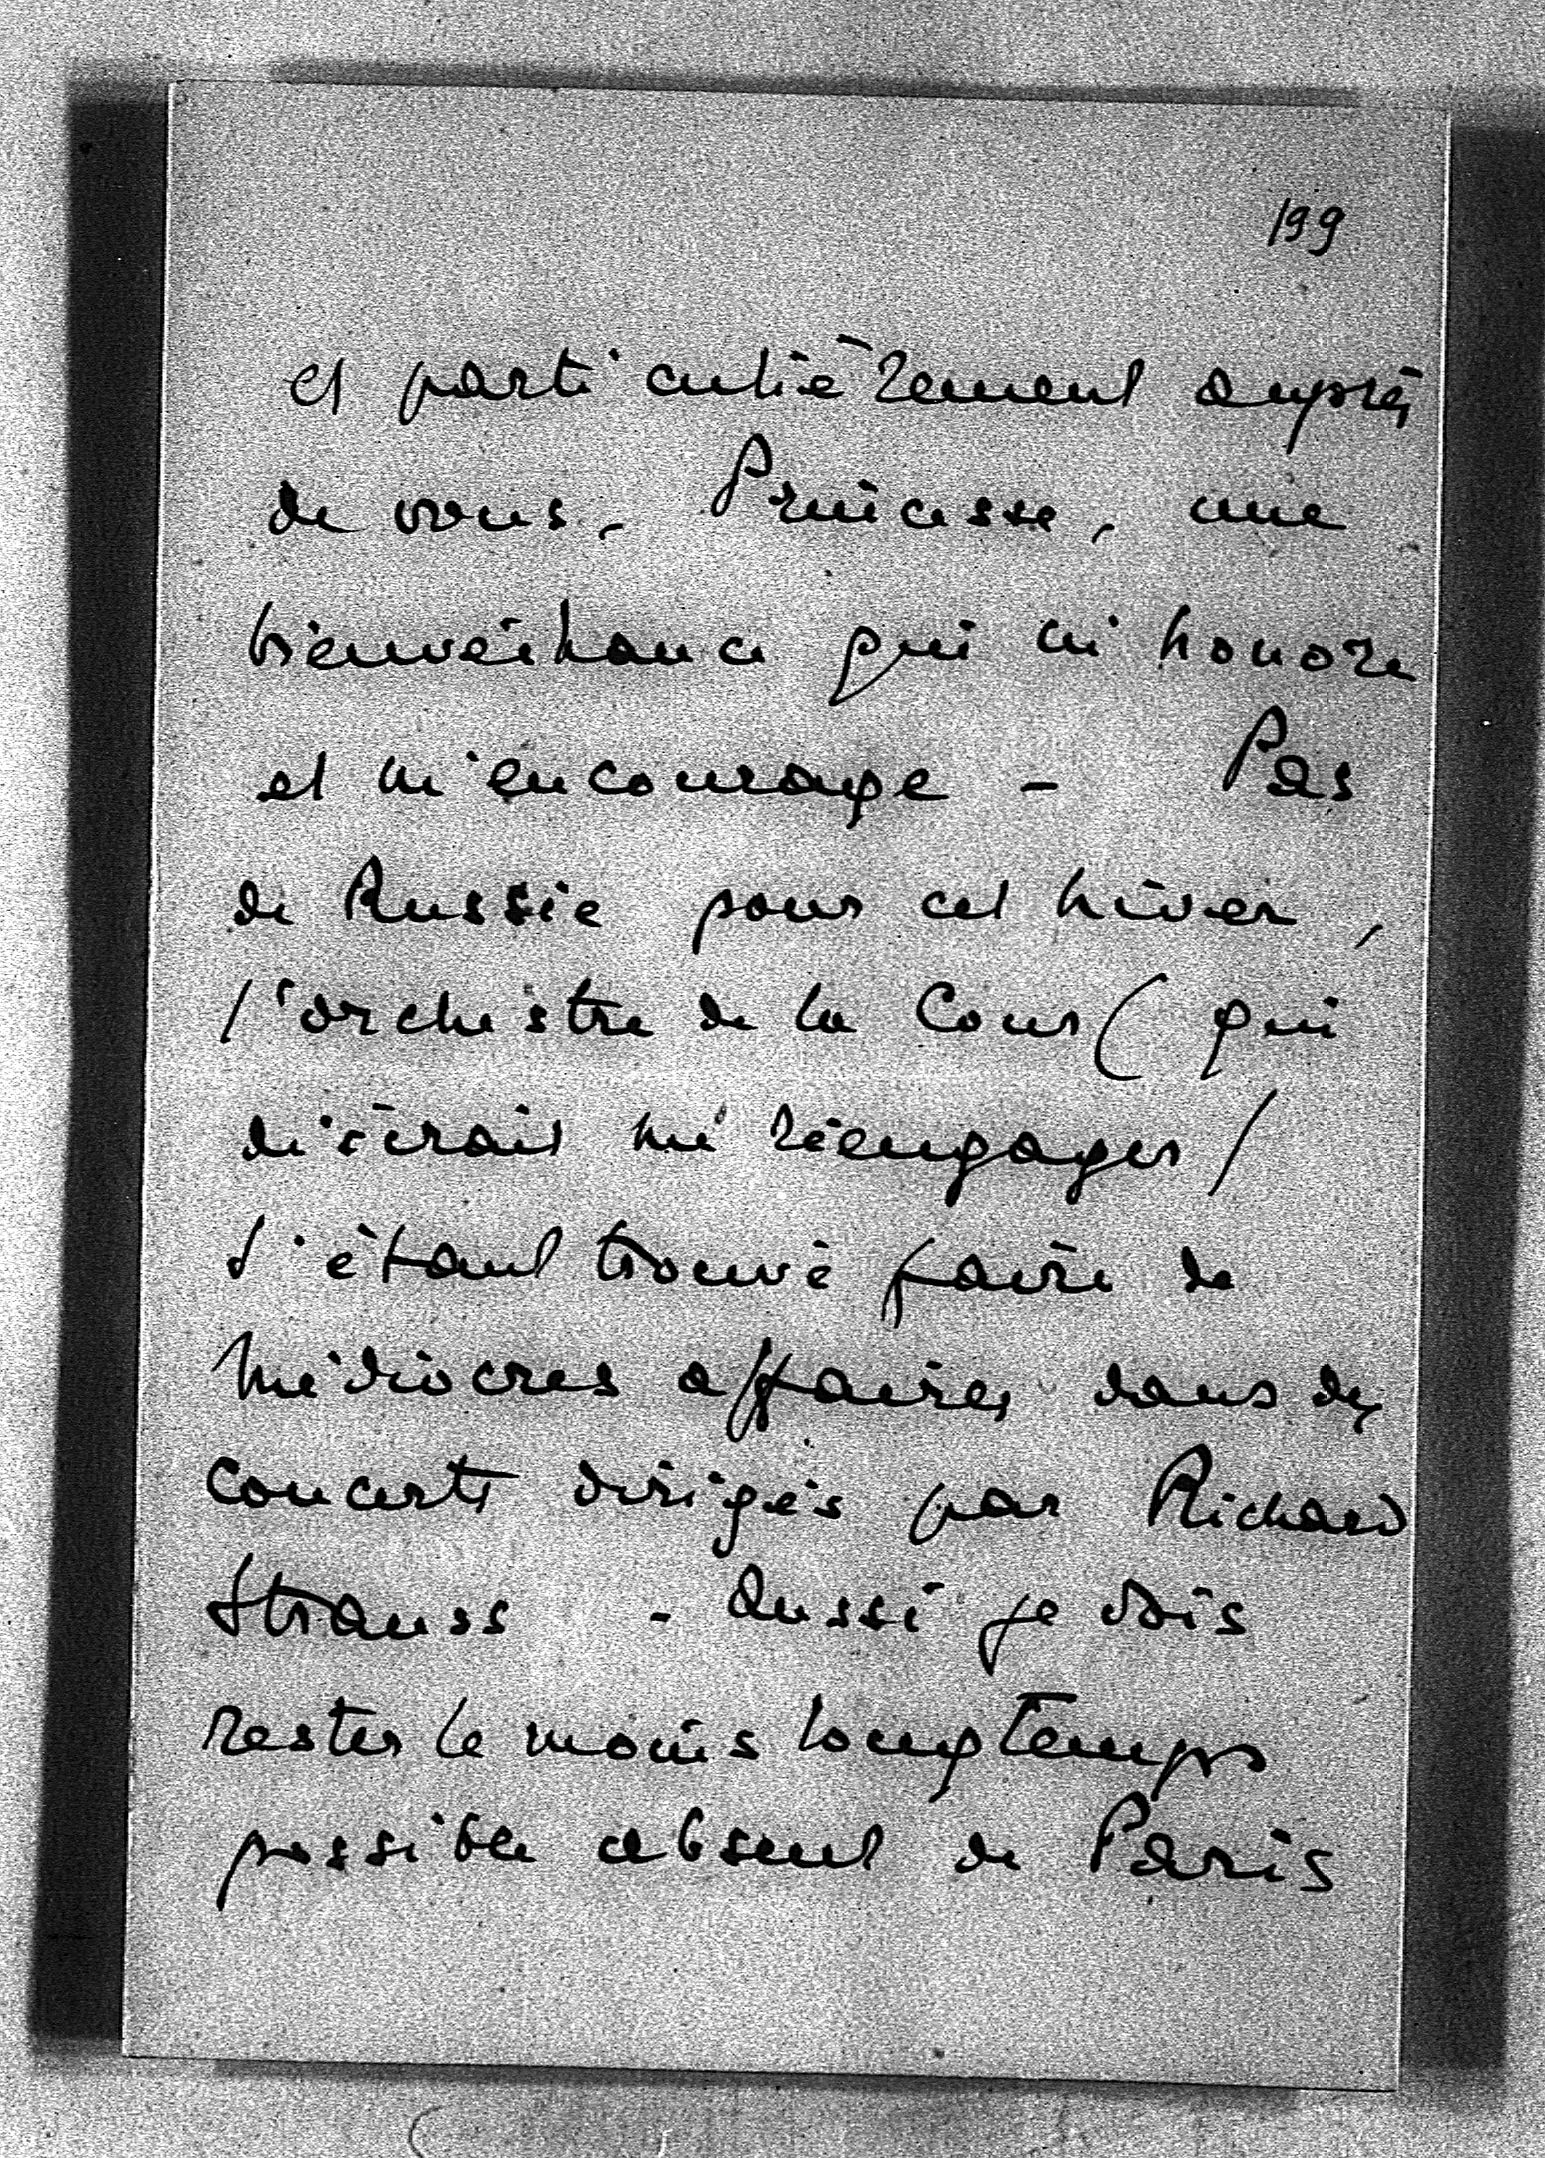 199
et particulièrement auprès
de vous, Princesse, une
bienveillance qui m'honore
et m'encourage - Pas
de Russie pour cet hiver,
l'orchestre de la Cour (qui
désirait me réengager)
s'étant trouvé faire de
médiocres affaires dans des
concerts dirigés par Richard
Strauss - Aussi je vais
rester le moins longtemps
possible absent de Paris